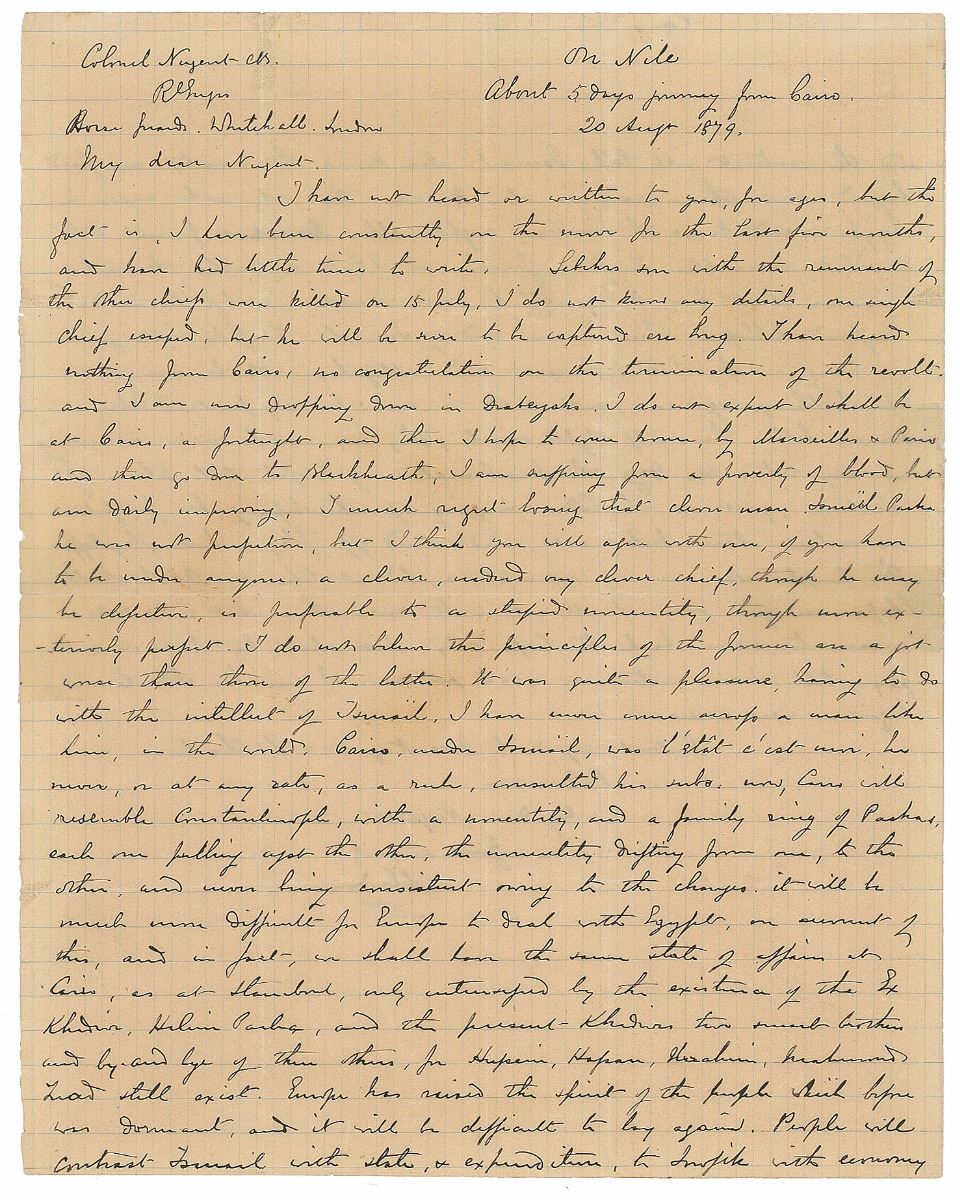 Colonel Nugent CB.
On Nile
REngrs
About 5 days journey from Cairo.
Horse Guards. Whitehall. London
20 Augt 1879.
My dear Nugent.
I have not heard or written to you, for ages, but the
fact is, I have been constantly on the move for the last five months,
and have had little time to write. Sebehrs son with the remnant of
the other chiefs were killed on 15 July, I do not know any details, one single
chief escaped, but he will be sure to be captured ere long. I have heard
nothing from Cairo, no congratulation on the termination of the revolt.
and I am now dropping down in Drabeyahs. I do not expect I shall be
at Cairo, a fortnight, and then I hope to come home, by Marseilles & Paris
and then go down to Blackheath, I am suffering from a poverty of blood, but
am daily improving. I much regret losing that clever man Ismaïl Pasha
he was not perfection, but I think you will agree with me, if you have
to be under anyone. a clever, indeed very clever chief, though he may
be defective, is preferable to a stupid nonentity, though more ex-
-teriorly perfect. I do not believe the principles of the former are a jot
worse than those of the latter. It was quite a pleasure, having to do
with the intellect of Ismaïl, I have never come across a man like
him, in the world. Cairo, under Ismaïl, was l'état c'est moi, he
never, or at any rate, as a rule, consulted his subs. now, Cairo will
resemble Constantinople, with a nonentity, and a family ring of Pashas,
each one pulling agst the other, the nonentity drifting from one, to the
other, and never being consistent owing to the changes. it will be
much more difficult for Europe to deal with Egypt, on account of
this, and in fact, we shall have the same state of affairs at
Cairo, as at Stamboul, only intensified by the existence of the Ex
Khedive, Halim Pasha, and the present Khedives two smart brothers
and by-and bye of three others, for Hussein, Hassan, Ibrahim, Mahmoud
Fuad still exist. Europe has raised the spirit of the people which before
was dormant, and it will be difficult to lay again. People will
contrast Ismail with state, & expenditure, to Tewfik with economy